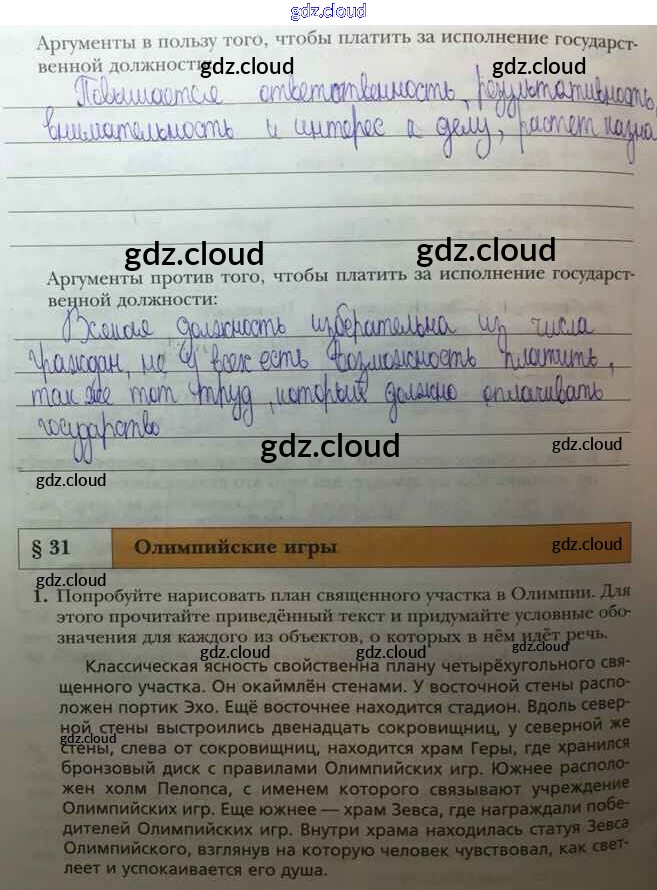 gdz.cloud
Аргументы в пользу того, чтобы платить за исполнение государст-
венной должности:
gdz.cloud
gdz.cloud
Повышается ответственность, результативность,
внимательность и интерес к делу, растет казна
gdz.cloud
gdz.cloud
Аргументы против того, чтобы платить за исполнение государст-
венной должности:
Всякая должность избирательна из числа
граждан, не у всех есть возможность платить,
так же тот труд, который должно оплачивать
государство
gdz.cloud
gdz.cloud
gdz.cloud
§ 31 Олимпийские игры
gdz.cloud
gdz.cloud
1. Попробуйте нарисовать план священного участка в Олимпии. Для
этого прочитайте приведённый текст и придумайте условные обо-
значения для каждого из объектов, о которых в нём идёт речь.
gdz.cloud
Классическая ясность свойственна плану четырёхугольного свя-
щенного участка. Он окаймлён стенами. У восточной стены распо-
ложен портик Эхо. Ещё восточнее находится стадион. Вдоль север-
ной стены выстроились двенадцать сокровищниц, у северной же
gdz.cloud
стены, слева от сокровищниц, находится храм Геры, где хранился
бронзовый диск с правилами Олимпийских игр. Южнее располо-
жен холм Пелопса, с именем которого связывают учреждение
Олимпийских игр. Еще южнее — храм Зевса, где награждали побе-
дителей Олимпийских игр. Внутри храма находилась статуя Зевса
Олимпийского, взглянув на которую человек чувствовал, как свет-
леет и успокаивается его душа.